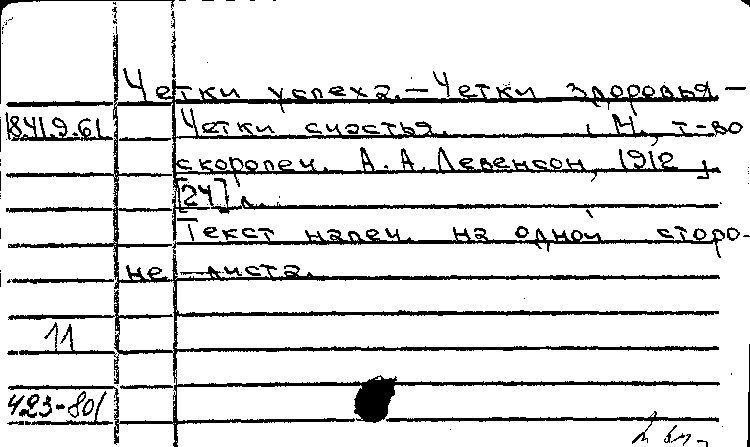 Четки успеха.-Четки здоровья-
841.9.61 Четки счастья. М., т-во
скоропеч. А.А.Левенсон, 1912
[24] л.
Текст напеч. на одной сторо-
не листа.
11
423-80/